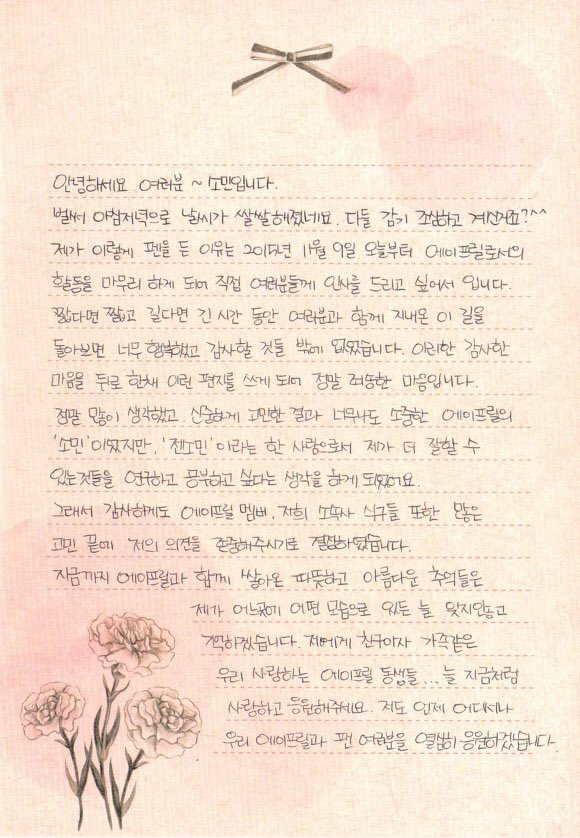 안녕하세요 여러분 ~ 소민입니다.
벌써 아침저녁으로 날씨가 쌀쌀해졌네요. 다들 감기 조심하고 계신거죠?^^
제가 이렇게 펜을 든 이유는 2015년 11월 9일 오늘부터 에이프릴로서의
활동을 마무리 하게 되어 직접 여러분들께 인사를 드리고 싶어서 입니다.
짧다면 짧고 길다면 긴 시간 동안 여러분과 함께 지내온 이 길을
돌아보면 너무 행복했고 감사할 것들 밖에 없었습니다. 이러한 감사한
마음을 뒤로 한채 이런 편지를 쓰게 되어 정말 죄송한 마음입니다.
정말 많이 생각했고 신중하게 고민한 결과 너무나도 소중한 에이프릴의
'소민'이었지만, '전소민'이라는 한 사람으로서 제가 더 잘할 수
있는것들을 연구하고 공부하고 싶다는 생각을 하게 되었어요.
그래서 감사하게도 에이프릴 멤버, 저희 소속사 식구들 또한 많은
고민 끝에 저의 의견을 존중해주시기로 결정하였습니다.
지금까지 에이프릴과 함께 쌓아온 따뜻하고 아름다운 추억들은
제가 어느곳에 어떤 모습으로 있든 늘 잊지않고
기억하겠습니다. 저에게 친구이자 가족같은
우리 사랑하는 에이프릴 동생들... 늘 지금처럼
사랑하고 응원해주세요. 저도 언제 어디서나
우리 에이프릴과 팬 여러분을 열심히 응원하겠습니다.